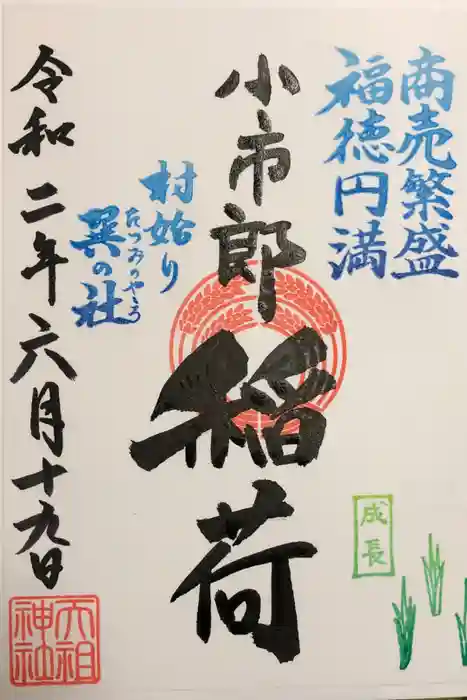 商売繁盛
福徳円満
小市郎稲荷
村始り
巽の社
たつみのやしろ
令和二年六月十九日
成長
六祖
神社